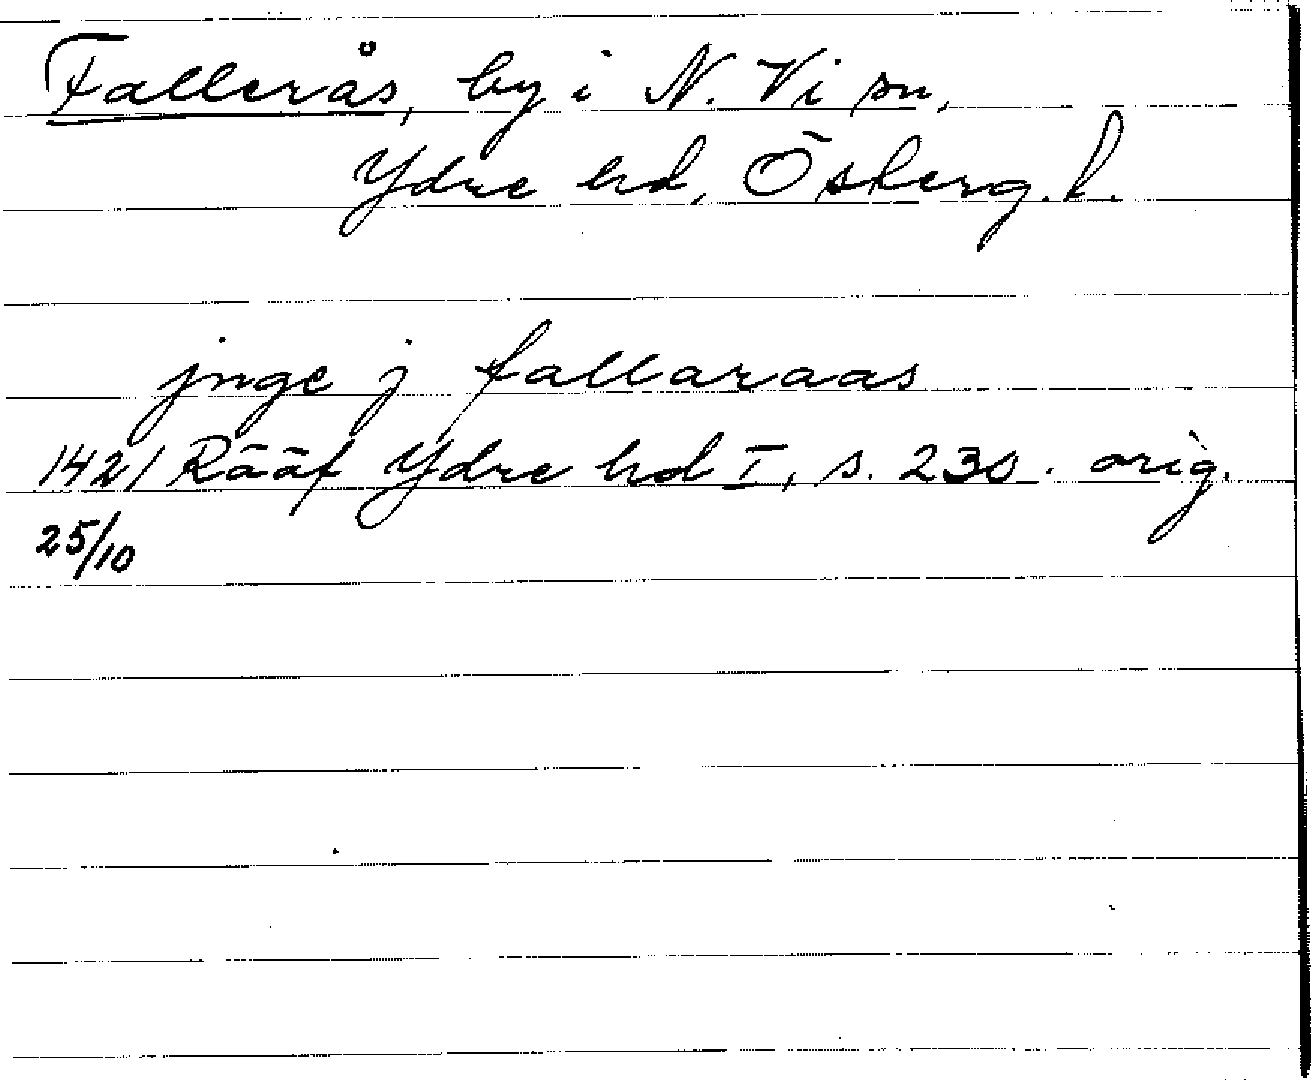 Fallerås, by i N. Vi sn,
Ydre hd, Österg. l.
jnge j fallaraas
1421 Rääf Ydre hd I, s. 230. orig.
25/10